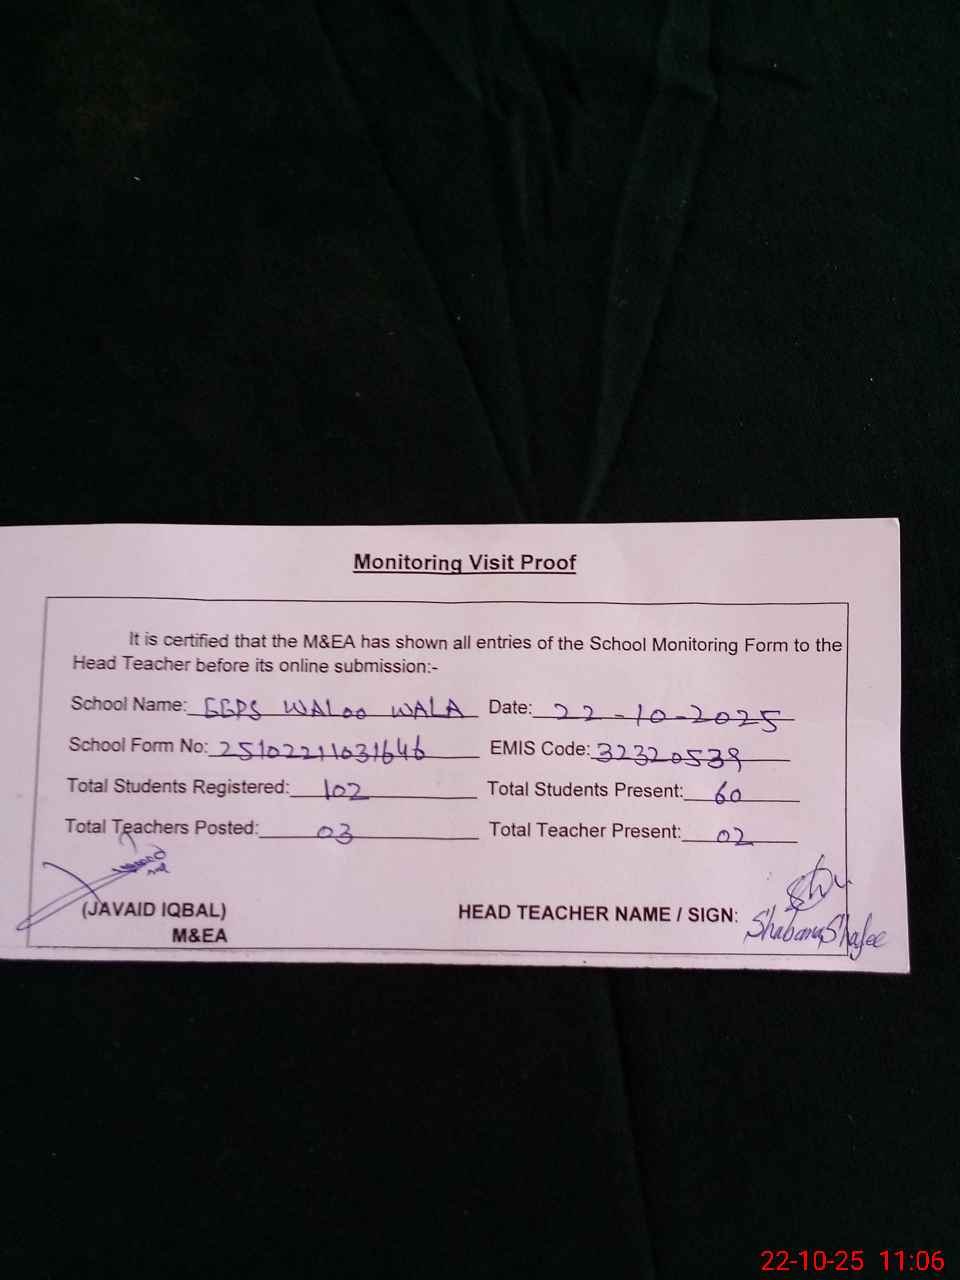 Monitoring Visit Proof
It is certified that the M&EA has shown all entries of the School Monitoring Form to the
Head Teacher before its online submission:-
School Name: GGPS WALOO WALA Date: 22-10-2025
School Form No: 25102211031646 EMIS Code: 32320539
Total Students Registered: 102 Total Students Present: 60
Total Teachers Posted: 03 Total Teacher Present: 02
(JAVAID IQBAL) HEAD TEACHER NAME / SIGN: Shabana Shafee
M&EA
22-10-25 11:06